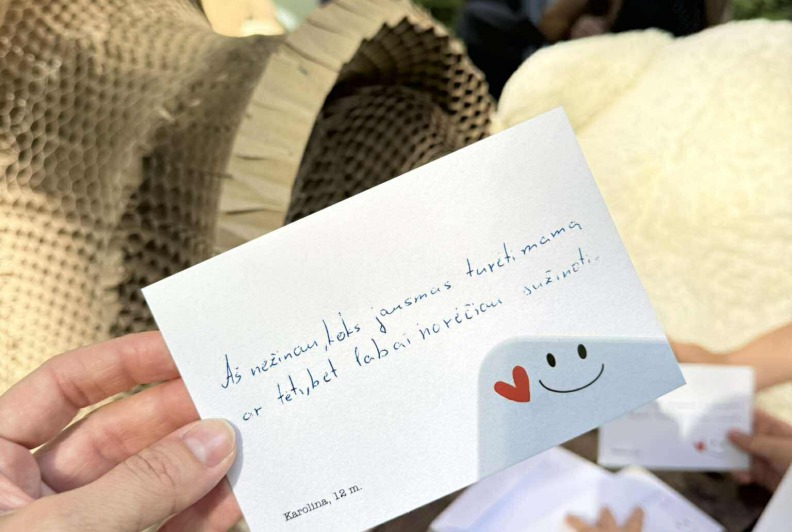 Aš nežinau, koks jausmas turėti mamą
ar tėtį, bet labai norėčiau sužinoti.
Karolina, 12 m.